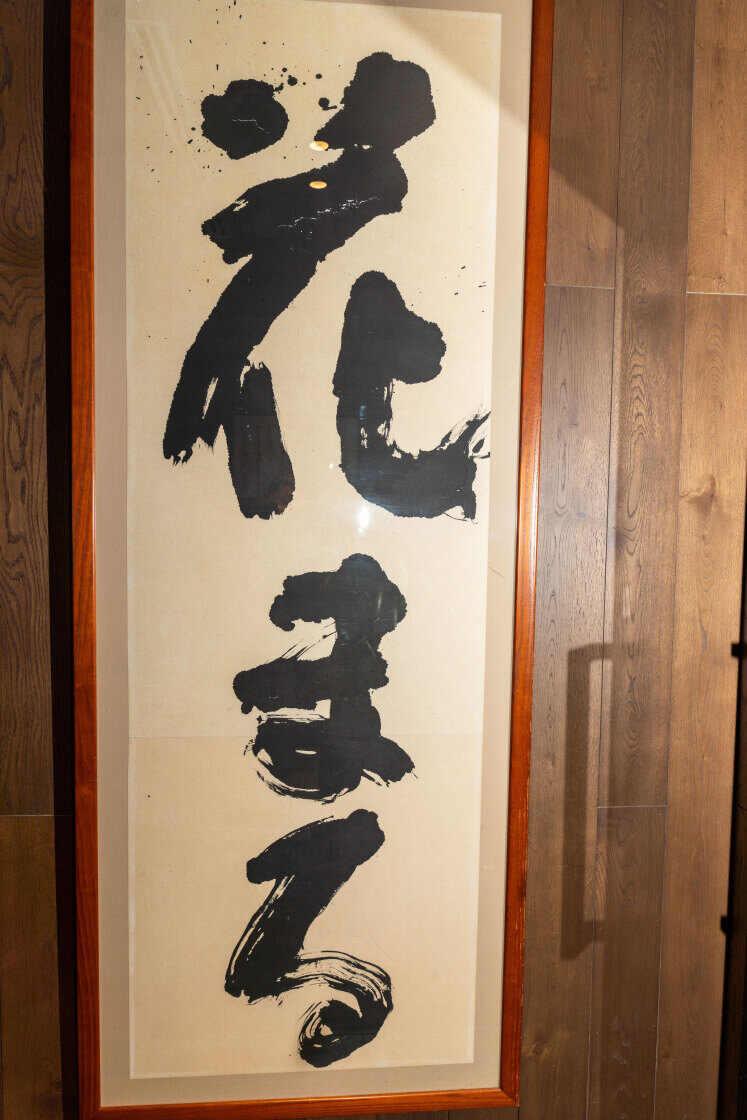 花まる